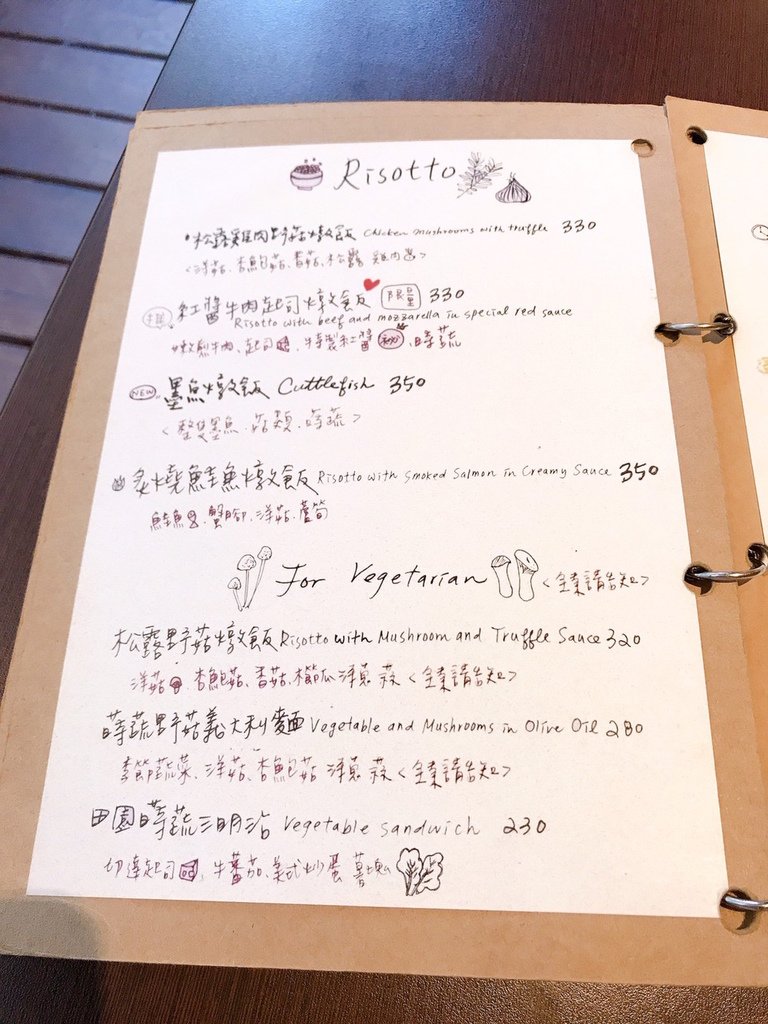 Risotto
松露雞肉野菇燉飯 Chicken mushrooms with truffle 330
<洋菇、杏鮑菇、香菇、松露 雞肉>
推 紅醬牛肉起司燉飯 限量 330
Risotto with beef and mozzarella in special red sauce
嫩煎牛肉、起司、特製紅醬 秘、時蔬
NEW 墨魚燉飯 Cuttlefish 350
<整隻墨魚、菇類、時蔬>
炙燒鮭魚燉飯 Risotto with Smoked Salmon in Creamy Sauce 350
鮭魚、蟹腳、洋菇、蘆筍
For Vegetarian <全素請告知>
松露野菇燉飯 Risotto with Mushroom and Truffle Sauce 320
洋菇、杏鮑菇、香菇、櫛瓜 洋蔥 蒜 <全素請告知>
蒔蔬野菇義大利麵 Vegetable and Mushrooms in Olive Oil 280
季節蔬菜、洋菇、杏鮑菇 洋蔥 蒜 <全素請告知>
田園蒔蔬三明治 Vegetable sandwich 230
切達起司、牛蕃茄、美式炒蛋 薯塊